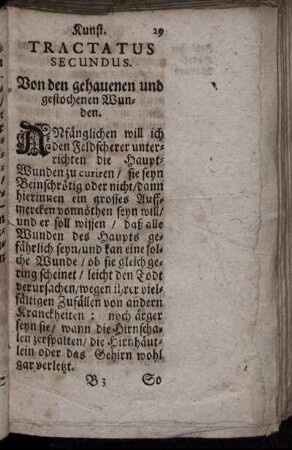 Kunst. 29
TRACTATUS
SECUNDUS.
Von den gehauenen und
gestochenen Wun-
den.
ANfänglichen will ich
den Feldscherer unter-
richten die Haupt-
Wunden zu curiren / sie seyn
Beinschrötig oder nicht / dann
hierinnen ein grosses Auff-
mercken vonnöthen seyn will /
und er soll wissen / daß alle
Wunden des Haupts ge-
fährlich seyn / und kan eine sol-
che Wunde / ob sie gleich ge-
ring scheinet / leicht den Todt
verursachen / wegen ihrer viel-
fältigen Zufällen von andern
Kranckheiten : noch ärger
seyn sie / wann die Hirnscha-
len zerspalten / die Hirnhäut-
lein oder das Gehirn wohl
gar verletzt.
B 3 So